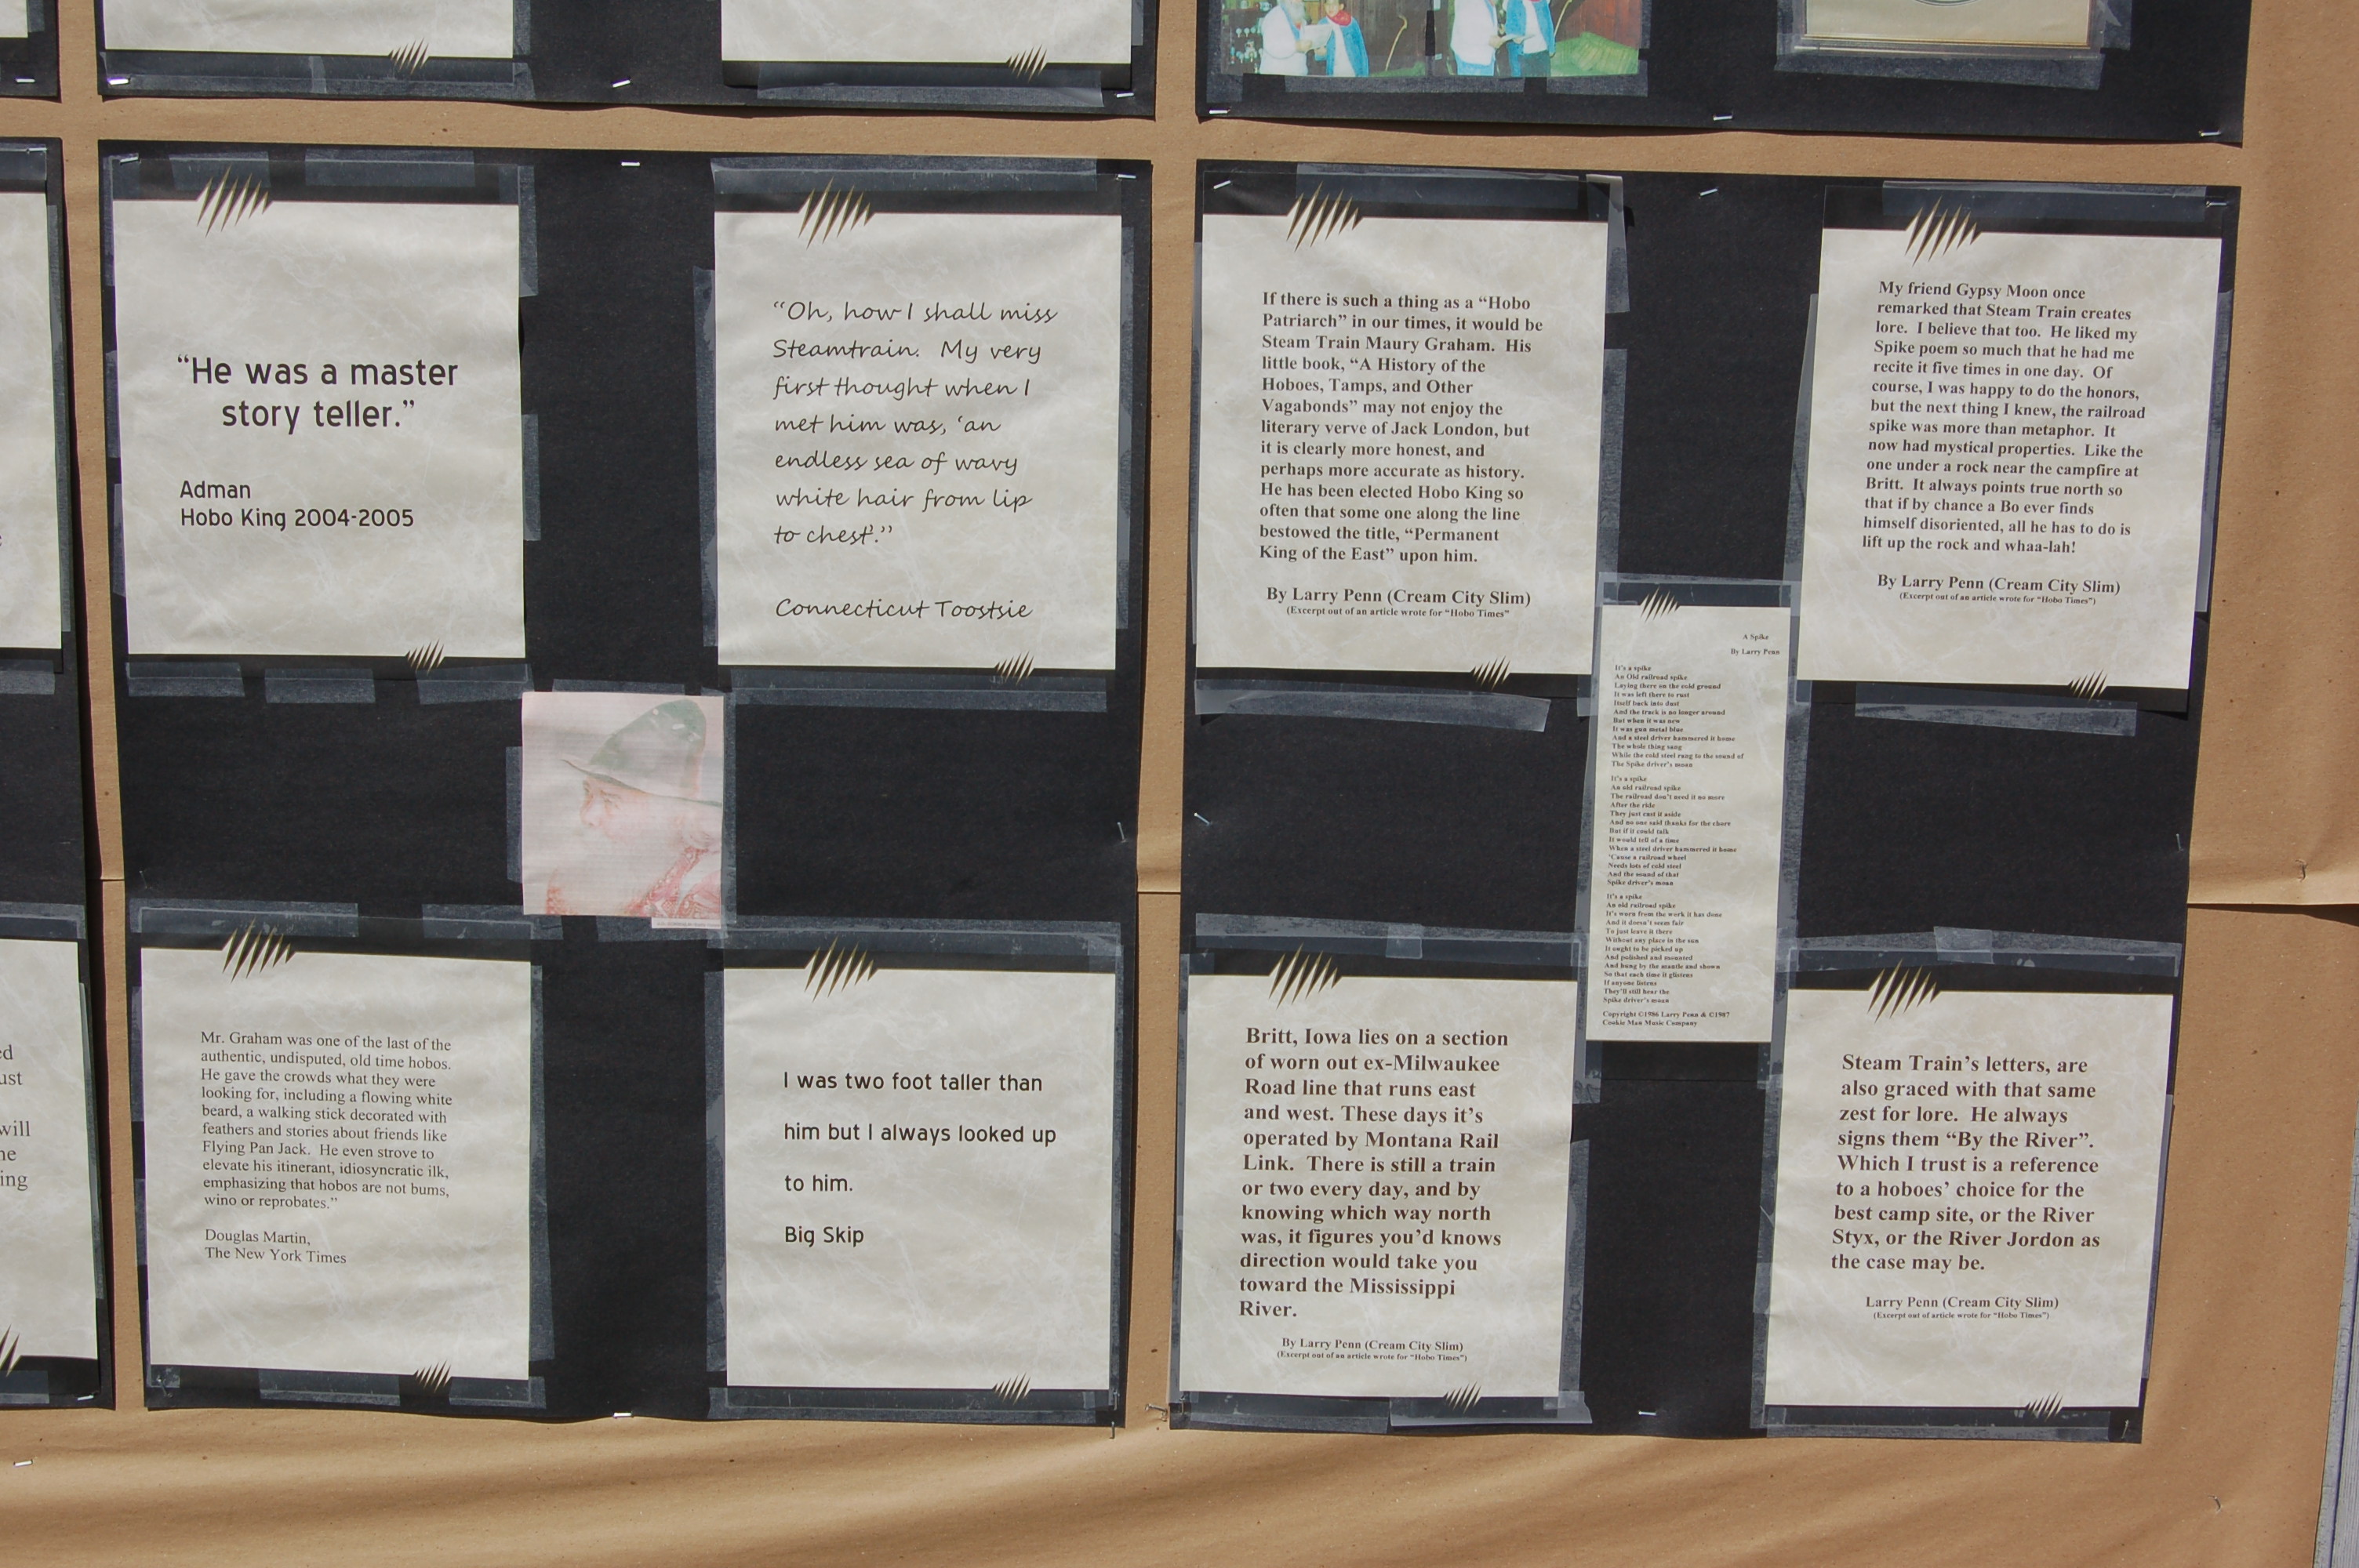 “He was a master
story teller.”
Adman
Hobo King 2004-2005
“Oh, how I shall miss
Steamtrain. My very
first thought when I
met him was, ‘an
endless sea of wavy
white hair from lip
to chest’.”
Connecticut Toostsie
If there is such a thing as a “Hobo
Patriarch” in our times, it would be
Steam Train Maury Graham. His
little book, “A History of the
Hoboes, Tamps, and Other
Vagabonds” may not enjoy the
literary verve of Jack London, but
it is clearly more honest, and
perhaps more accurate as history.
He has been elected Hobo King so
often that some one along the line
bestowed the title, “Permanent
King of the East” upon him.
By Larry Penn (Cream City Slim)
(Excerpt out of an article wrote for “Hobo Times”
My friend Gypsy Moon once
remarked that Steam Train creates
lore. I believe that too. He liked my
Spike poem so much that he had me
recite it five times in one day. Of
course, I was happy to do the honors,
but the next thing I knew, the railroad
spike was more than metaphor. It
now had mystical properties. Like the
one under a rock near the campfire at
Britt. It always points true north so
that if by chance a Bo ever finds
himself disoriented, all he has to do is
lift up the rock and whaa-lah!
By Larry Penn (Cream City Slim)
(Excerpt out of an article wrote for “Hobo Times”)
A Spike
By Larry Penn
It’s a spike
An Old railroad spike
Laying there on the cold ground
It was left there to rust
Itself back into dust
And the track is no longer around
But when it was new
It was gun metal blue
And a steel driver hammered it home
The whole thing sang
While the cold steel rang to the sound of
The Spike driver’s moan
It’s a spike
An old railroad spike
The railroad don’t need it no more
After the ride
They just cast it aside
And no one said thanks for the chore
But if it could talk
It would tell of a time
When a steel driver hammered it home
’Cause a railroad wheel
Needs lots of cold steel
And the sound of that
Spike driver’s moan
It’s a spike
An old railroad spike
It’s worn from the work it has done
And it doesn’t seem fair
To just leave it there
Without any place in the sun
It ought to be picked up
And polished and mounted
And hung by the mantle and shown
So that each time it glistens
If anyone listens
They’ll still hear the
Spike driver’s moan
Copyright ©1986 Larry Penn & ©1987
Cookie Man Music Company
Mr. Graham was one of the last of the
authentic, undisputed, old time hobos.
He gave the crowds what they were
looking for, including a flowing white
beard, a walking stick decorated with
feathers and stories about friends like
Flying Pan Jack. He even strove to
elevate his itinerant, idiosyncratic ilk,
emphasizing that hobos are not bums,
wino or reprobates.”
Douglas Martin,
The New York Times
I was two foot taller than
him but I always looked up
to him.
Big Skip
Britt, Iowa lies on a section
of worn out ex-Milwaukee
Road line that runs east
and west. These days it’s
operated by Montana Rail
Link. There is still a train
or two every day, and by
knowing which way north
was, it figures you’d knows
direction would take you
toward the Mississippi
River.
By Larry Penn (Cream City Slim)
(Excerpt out of an article wrote for “Hobo Times”)
Steam Train’s letters, are
also graced with that same
zest for lore. He always
signs them “By the River”.
Which I trust is a reference
to a hoboes’ choice for the
best camp site, or the River
Styx, or the River Jordon as
the case may be.
Larry Penn (Cream City Slim)
(Excerpt out of article wrote for “Hobo Times”)